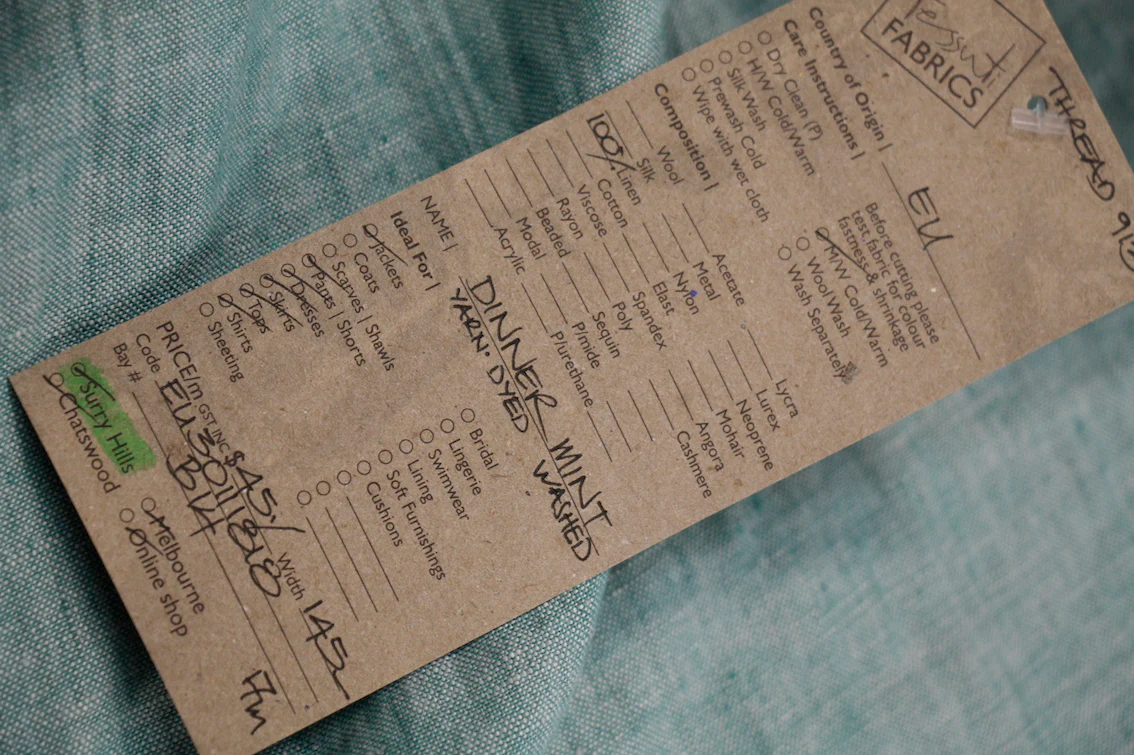 Tessuti
FABRICS
THREAD
Country of Origin | EU
Care Instructions |
Dry Clean (P)
H/W Cold/Warm
Silk Wash
Prewash Cold
Wipe with wet cloth
Before cutting please
test fabric for colour
fastness & shrinkage
M/W Cold/Warm
Wool Wash
Wash Separately
Composition |
Wool
Silk
100% Linen
Cotton
Viscose
Rayon
Beaded
Modal
Acrylic
Acetate
Metal
Nylon
Elast
Spandex
Poly
Sequin
P/mide
P/urethane
Lycra
Lurex
Neoprene
Mohair
Angora
Cashmere
NAME | DINNER MINT
YARN. DYED WASHED
Ideal For |
Jackets
Coats
Scarves | Shawls
Pants | Shorts
Dresses
Skirts
Tops
Shirts
Sheeting
Bridal
Lingerie
Swimwear
Lining
Soft Furnishings
Cushions
PRICE/m GST INC $45./ Width 145
Code EU3011818
Bay # B14 17m
Surry Hills
Chatswood
Melbourne
Online shop